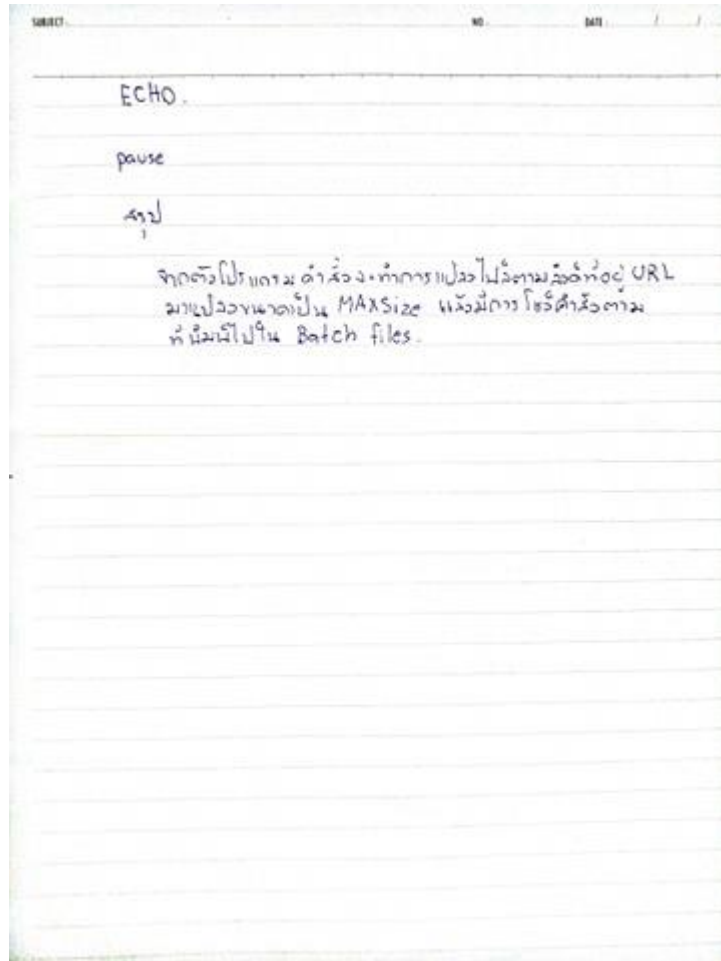 SUBJECT NO. DATE / /
ECHO.
pause
สรุป
จากตัวโปรแกรม คำสั่งจะทำการแปลงไฟล์ตามลิงค์ที่อยู่ URL
มาแปลงขนาดเป็น MAXSize แล้วมีการโชว์คำสั่งตาม
ที่พิมพ์ไปใน Batch files.